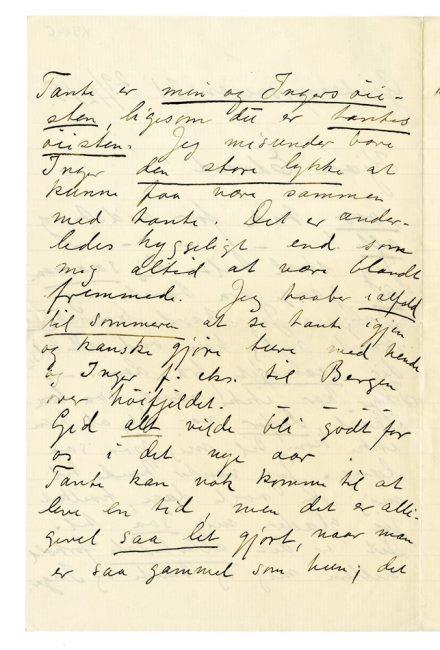 Tante er min og Ingers öii-
sten, ligesom dit er tantes
öiisten. Jeg misunder bare
Inger den store lykke at
kunne faa være sammen
med tante. Det er ander-
ledes hyggeligt end som
mig altid at være blandt
fremmede. Jeg haaber ialfald
til sommeren at se tante igjen
og kanske gjøre ture med hende
og Inger f. eks. til Bergen
over höifjeldet. – – – –
Gid alt vilde bli godt for
os i det nye aar.
Tante kan nok komme til at
leve en tid, men det er alli-
gevel saa let gjort, naar man
er saa gammel som hun; det